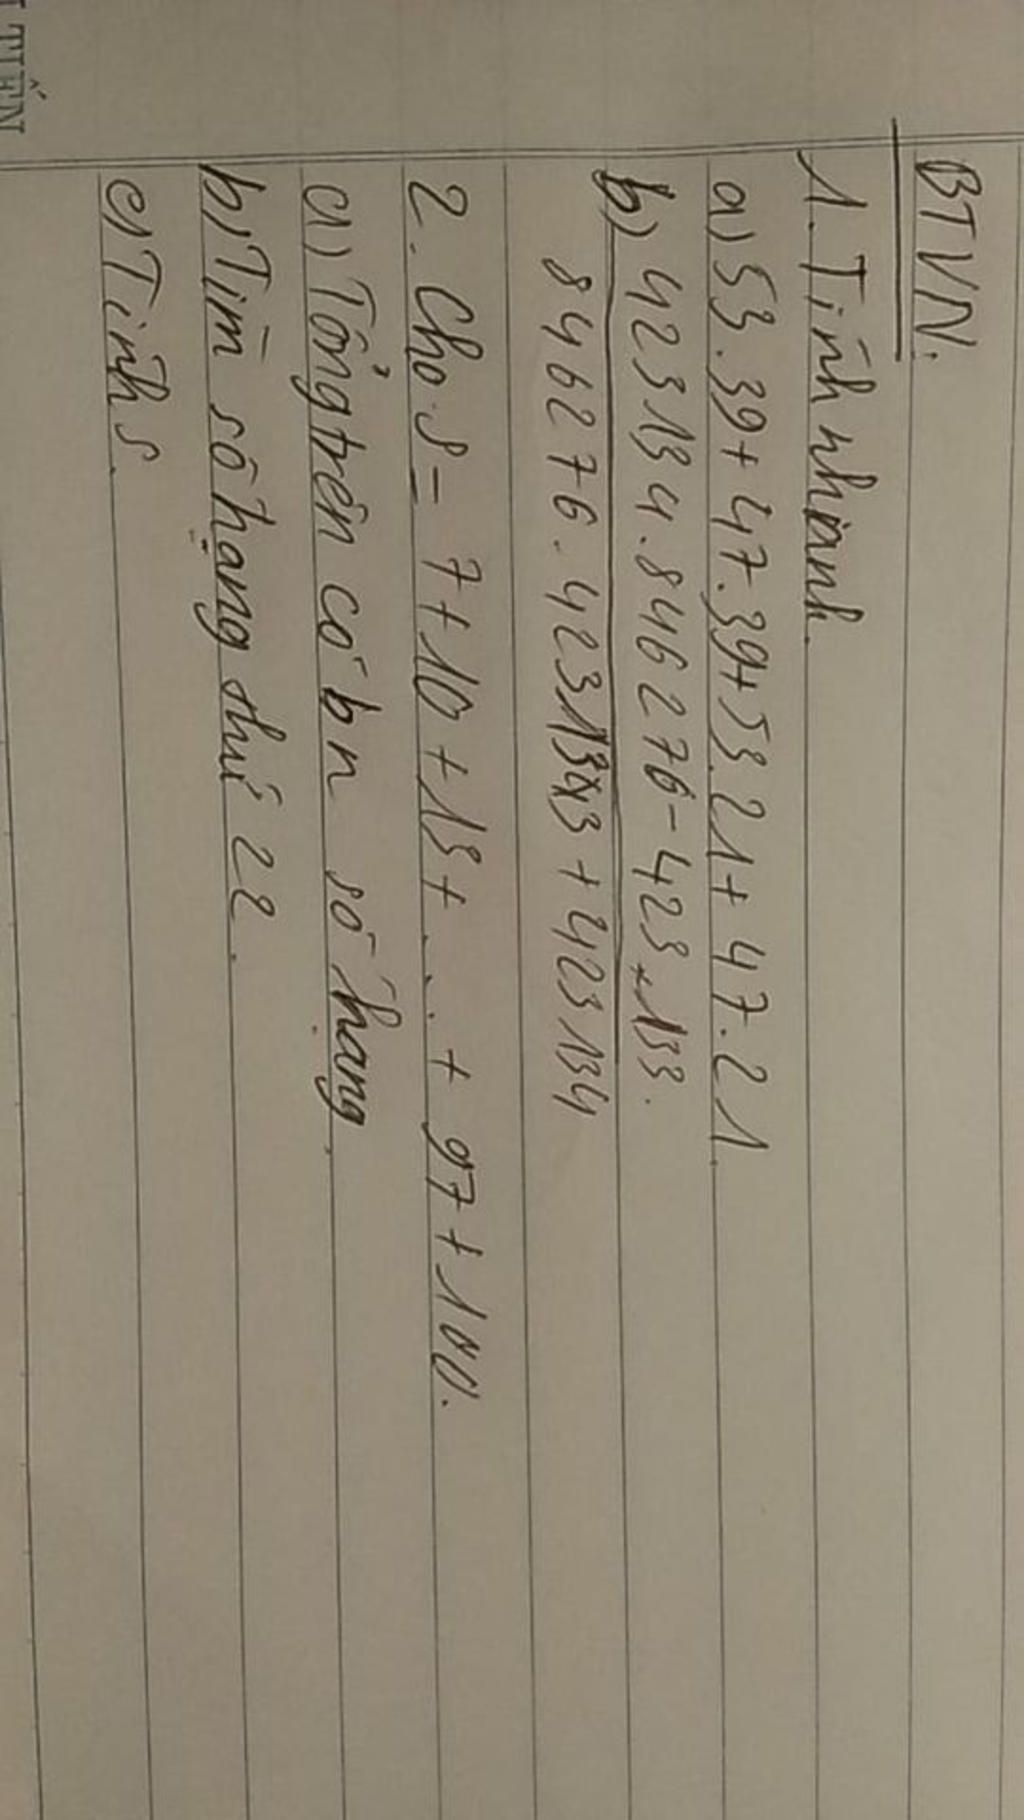 BTVN.
1. Tính nhanh.
a) 53.39+47.39+53.21+47.21.
b) 423134.846276-423×133.
846276.423133 + 423134
2. Cho S = 7+10+13+...+97+100.
a) Tổng trên có bn số hạng.
b) Tìm số hạng thứ 22.
c) Tính S.
TIẾN